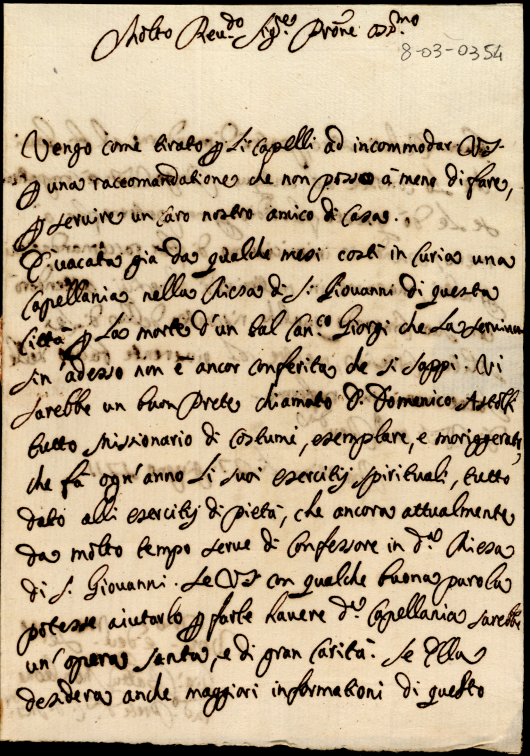 Molto Reu.do Sig.re Prone oss.mo
8-03-0354
Vengo come tirato p li capelli ad incommodar VS
p una raccomandatione che non posso à meno di fare,
p seruire un caro nostro amico di Casa.
E' uacata già da qualche mesi costì in Curia una
Capellania nella Chiesa di S. Giouanni di questa
Città p la morte d'un tal Can.co Giorgi che la seruiua
sin' adesso non è ancor conferita che si sappi. Vi
sarebbe un buon Prete chiamato D. Domenico
tutto Missionario di costumi, esemplare, e moriggerato,
che fà ogn'anno li suoi esercitij spirituali, tutto
dato alli esercitij di pietà, che ancora attualmente
da molto tempo serue di Confessore in d.a Chiesa
di S. Giouanni. Se VS con qualche buona parola
potesse aiutarlo p farle hauere d.a Capellania sarebbe
un'opera santa, e di gran carità. Se Ella
desidera anche maggiori informationi di questo